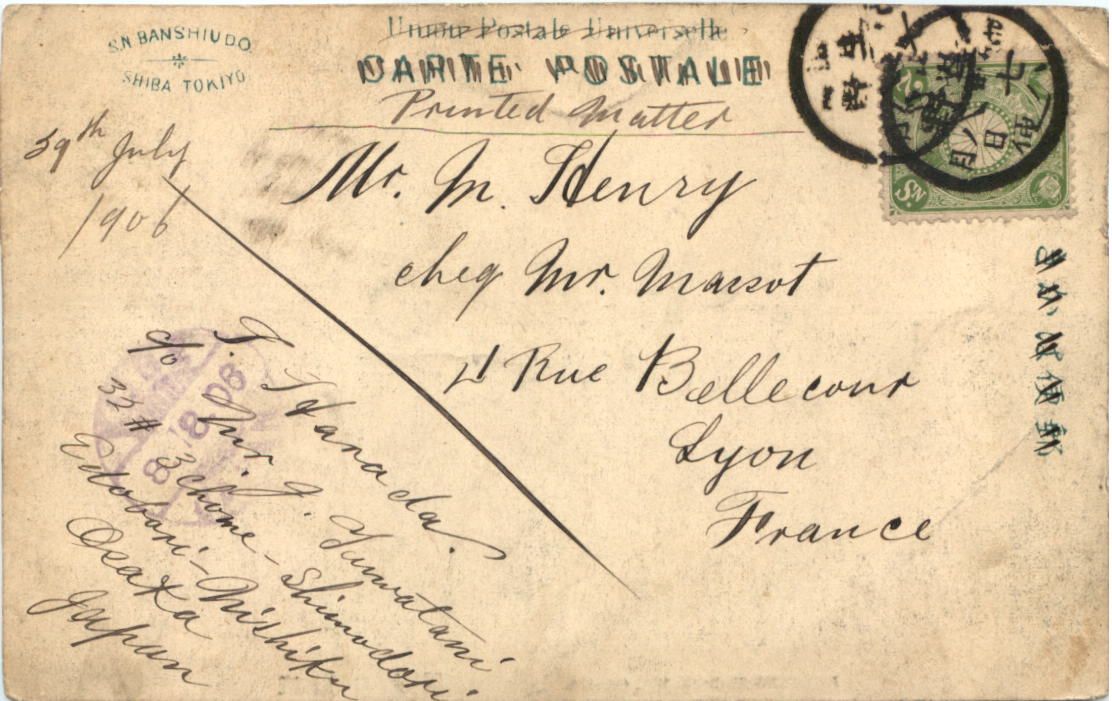 S.N. BANSHIUDO
SHIBA TOKIYO
Union Postale Universelle
CARTE POSTALE
Printed Matter
39th July
1906
Mr. M. Henry
cheq Mr. Massot
4 Rue Bellecour
Lyon
France
T. Harada.
c/o Mr. J. Yuwatani
32# 3 chome - Shimodori
Edobori - Nishiku
Osaka
Japan
8 18 06
5 Sn.
郵便